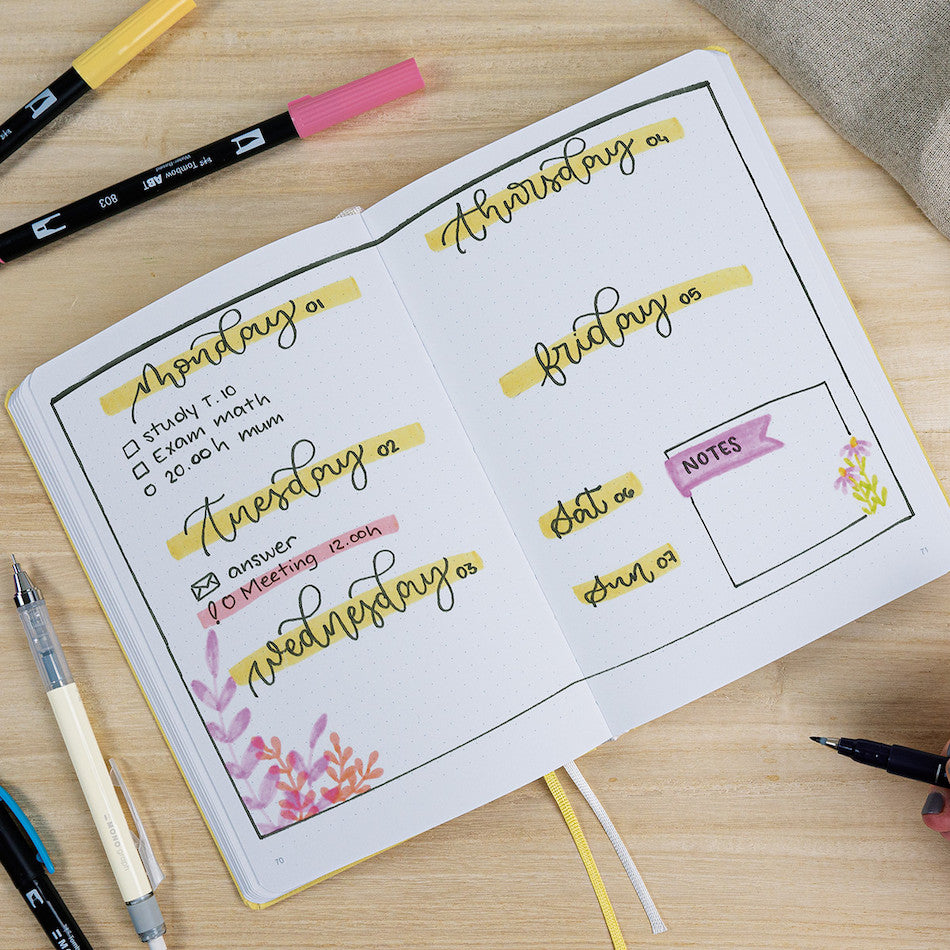 Tombow ABT
803
monday 01
study T. 10
Exam math
20.00h mum
tuesday 02
answer
! O Meeting 12.00h
wednesday 03
70
thursday 04
friday 05
Sat 06
Sun 07
NOTES
71
MONO graph